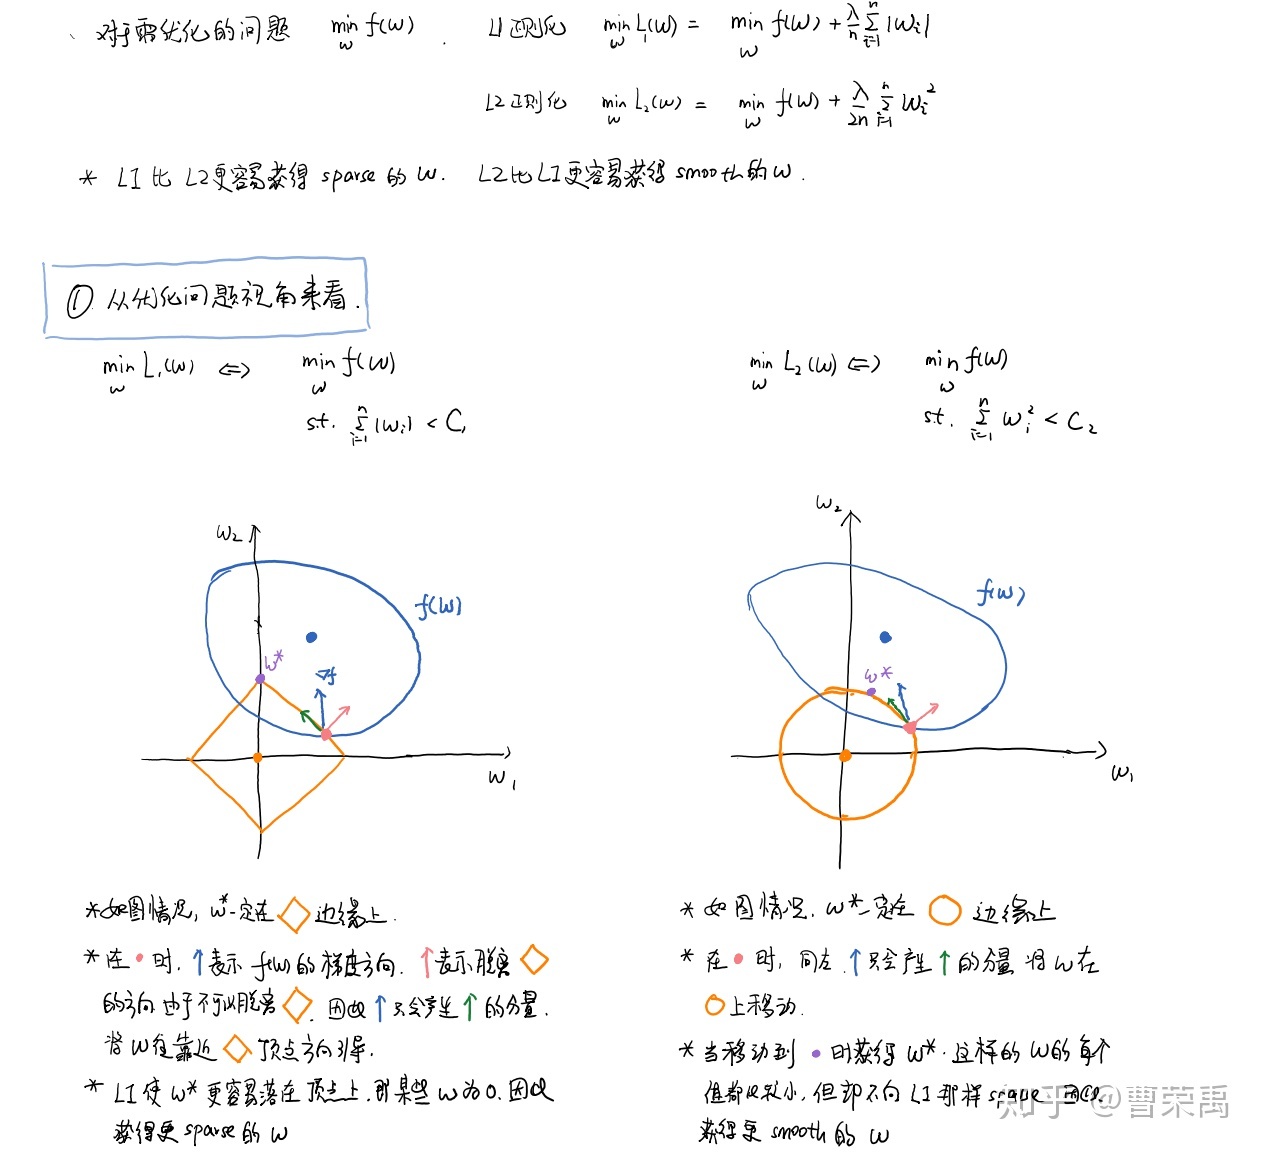 、对于需优化的问题 min_w f(w). L1正则化 min_w L₁(w) = min_w f(w) + λ/n Σ_{i=1}^n |w_i|
L2正则化 min_w L₂(w) = min_w f(w) + λ/2n Σ_{i=1}^n w_i²
* L1 比 L2更容易获得 sparse 的 w. L2比L1更容易获得 smooth的w.
① 从优化问题视角来看.
min_w L₁(w) ⇔ min_w f(w)
s.t. Σ_{i=1}^n |w_i| < C₁
min_w L₂(w) ⇔ min_w f(w)
s.t. Σ_{i=1}^n w_i² < C₂
w₂
f(w)
w*
∇f
w₁
w₂
f(w)
w*
w₁
*如图情况, w*一定在◇边缘上.
* 在•时. ↑表示 f(w)的梯度方向. ↑表示脱离◇
的方向 由于不可以脱离◇. 因此↑只会产生↑的分量.
将 w 往靠近◇顶点方向引导.
* L1 使 w* 更容易落在顶点上, 即某些 w为0. 因此
获得更 sparse 的 w
* 如图情况. w*一定在○边缘上
* 在•时, 同左. ↑只会产生↑的分量 将 w 在
○上移动.
* 当移动到•时获得 w*. 这样的 w的每个
值都比较小, 但却不向 L1 那样 sparse 因此
获得更 smooth 的 w
知乎 @曹荣禹